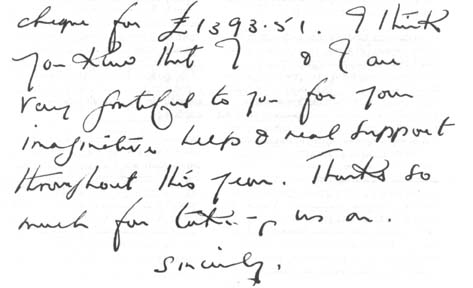 cheque for £1393.51. I think
you know that I & I are
very grateful to you for your
imaginative help & real support
throughout this year. Thanks so
much for taking us on.
Sincerely.